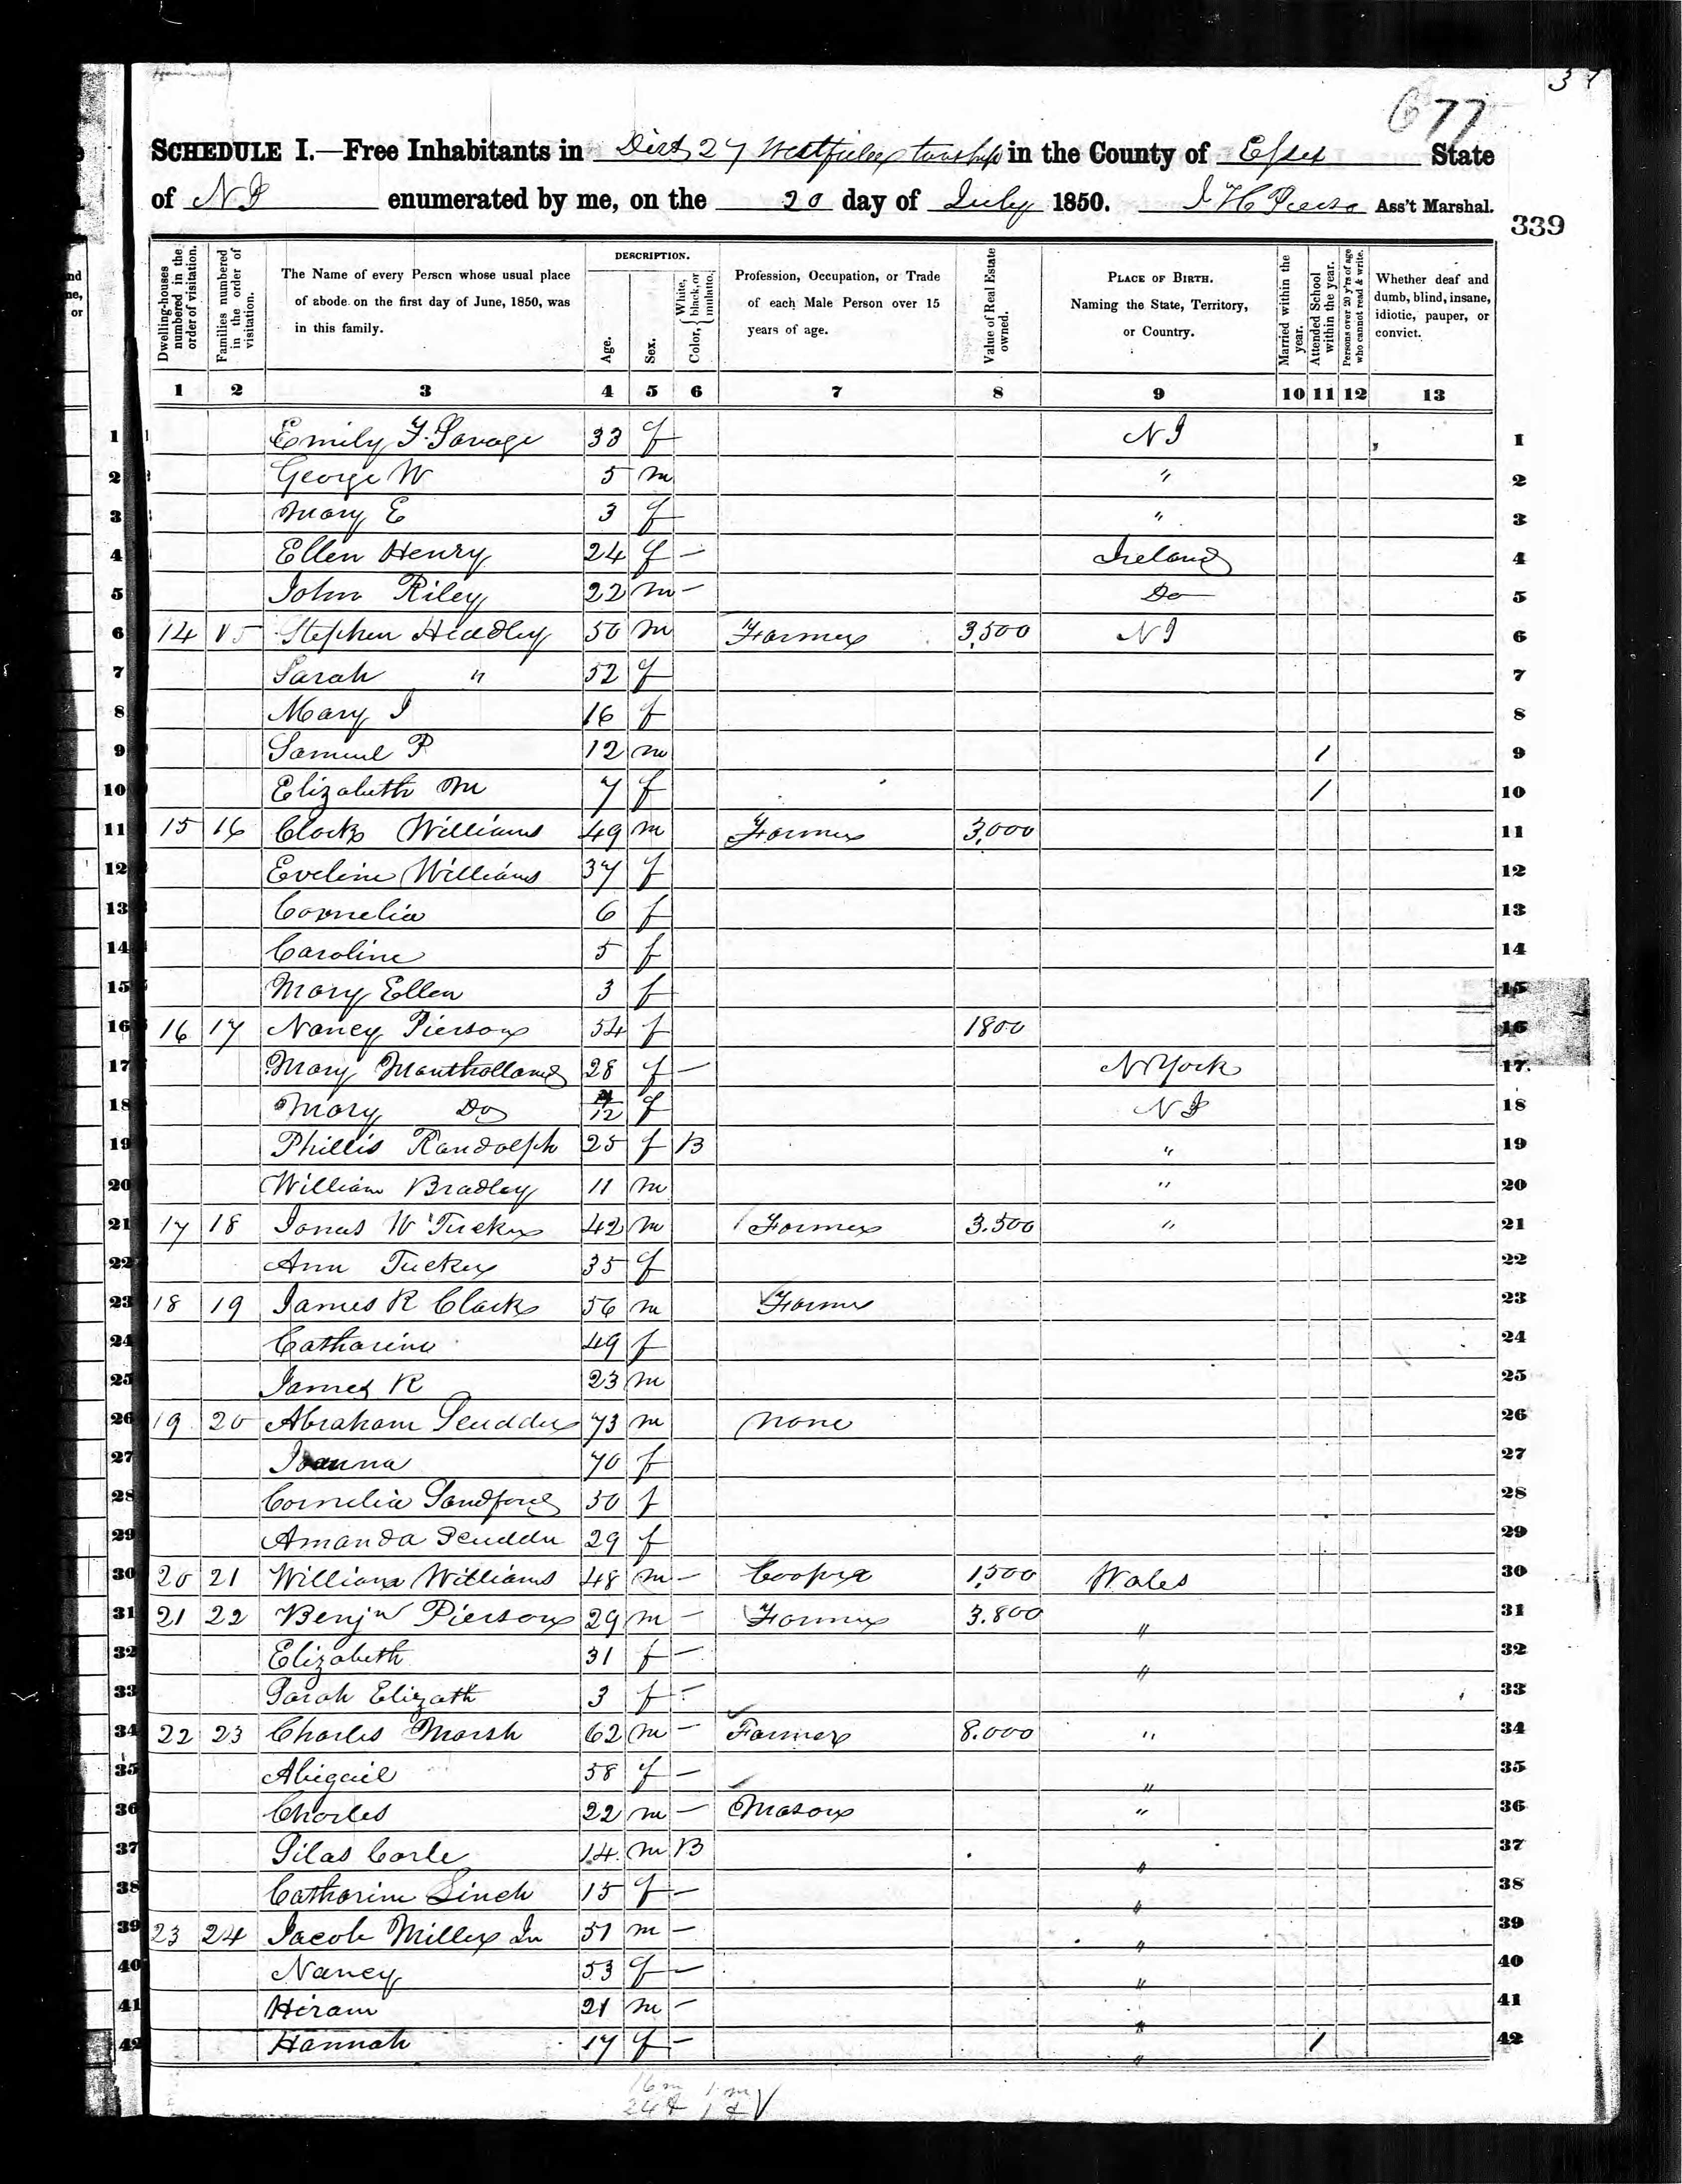 677
SCHEDULE I.—Free Inhabitants in Dist 27 Westfield township in the County of Essex State
of NJ enumerated by me, on the 20 day of July 1850. Ass't Marshal.
339
Dwelling-houses numbered in the order of visitation.
Families numbered in the order of visitation.
The Name of every Person whose usual place of abode on the first day of June, 1850, was in this family.
DESCRIPTION.
Age.
Sex.
Color, { White, black, or mulatto.
Profession, Occupation, or Trade of each Male Person over 15 years of age.
Value of Real Estate owned.
PLACE OF BIRTH. Naming the State, Territory, or Country.
Married within the year.
Attended School within the year.
Persons over 20 y'rs of age who cannot read & write.
Whether deaf and dumb, blind, insane, idiotic, pauper, or convict.
1 2 3 4 5 6 7 8 9 10 11 12 13
1 Emily F. Savage 33 f NJ 1
2 George W 5 m " 2
3 Mary E 3 f " 3
4 Ellen Henry 24 f – Ireland 4
5 John Riley 22 m – Do 5
6 14 15 Stephen Headley 50 m Farmer 3,500 NJ 6
7 Sarah " 52 f 7
8 Mary J 16 f 8
9 Samuel P 12 m / 9
10 Elizabeth M 7 f / 10
11 15 16 Clark Williams 49 m Farmer 3,000 11
12 Eveline Williams 37 f 12
13 Cornelia 6 f 13
14 Caroline 5 f 14
15 Mary Ellen 3 f 15
16 16 17 Nancy Pierson 54 f 1800 16
17 Mary Mantholland 28 f – N York 17
18 Mary Do /12 f NJ 18
19 Phillis Randolph 25 f B " 19
20 William Bradley 11 m " 20
21 17 18 Jonas W Tucker 42 m Farmer 3.500 " 21
22 Ann Tucker 35 f 22
23 18 19 James R Clark 56 m Farmer 23
24 Catharine 49 f 24
25 James R 23 m 25
26 19 20 Abraham Scudder 73 m none 26
27 Joanna 70 f 27
28 Cornelia Sandford 30 f 28
29 Amanda Scudder 29 f 29
30 20 21 William Williams 48 m – Cooper 1,500 Wales 30
31 21 22 Benjn Pierson 29 m – Farmer 3.800 " 31
32 Elizabeth 31 f – " 32
33 Sarah Elizath 3 f – 33
34 22 23 Charles Marsh 62 m – Farmer 8.000 " 34
35 Abigail 58 f – " 35
36 Charles 22 m – Mason " 36
37 Silas Corle 14 m B " 37
38 Catharine Linch 15 f – " 38
39 23 24 Jacob Miller Jn 51 m – " 39
40 Nancy 53 f – " 40
41 Hiram 21 m – " 41
42 Hannah 17 f – " / 42
16m 1 m
24f 1 f